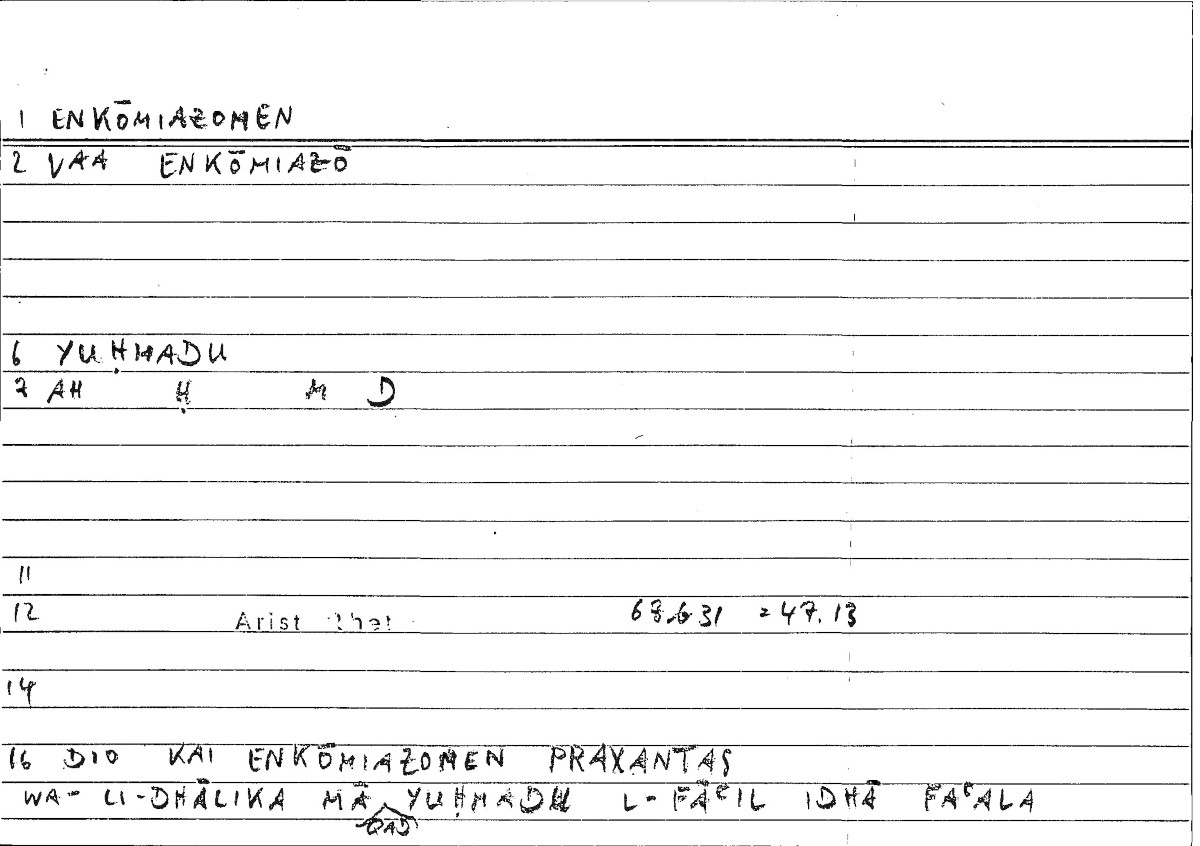 1 ENKŌMIAZOMEN
2 VAA ENKŌMIAZŌ
6 YUḤMADU
7 AH Ḥ M D
11
12 Arist Rhet 68.b31 = 47.13
14
16 DIO KAI ENKŌMIAZOMEN PRAXANTAS
WA- LI-DHĀLIKA MĀ YUḤMADU L-FĀʿIL IDHĀ FAʿALA
QAD